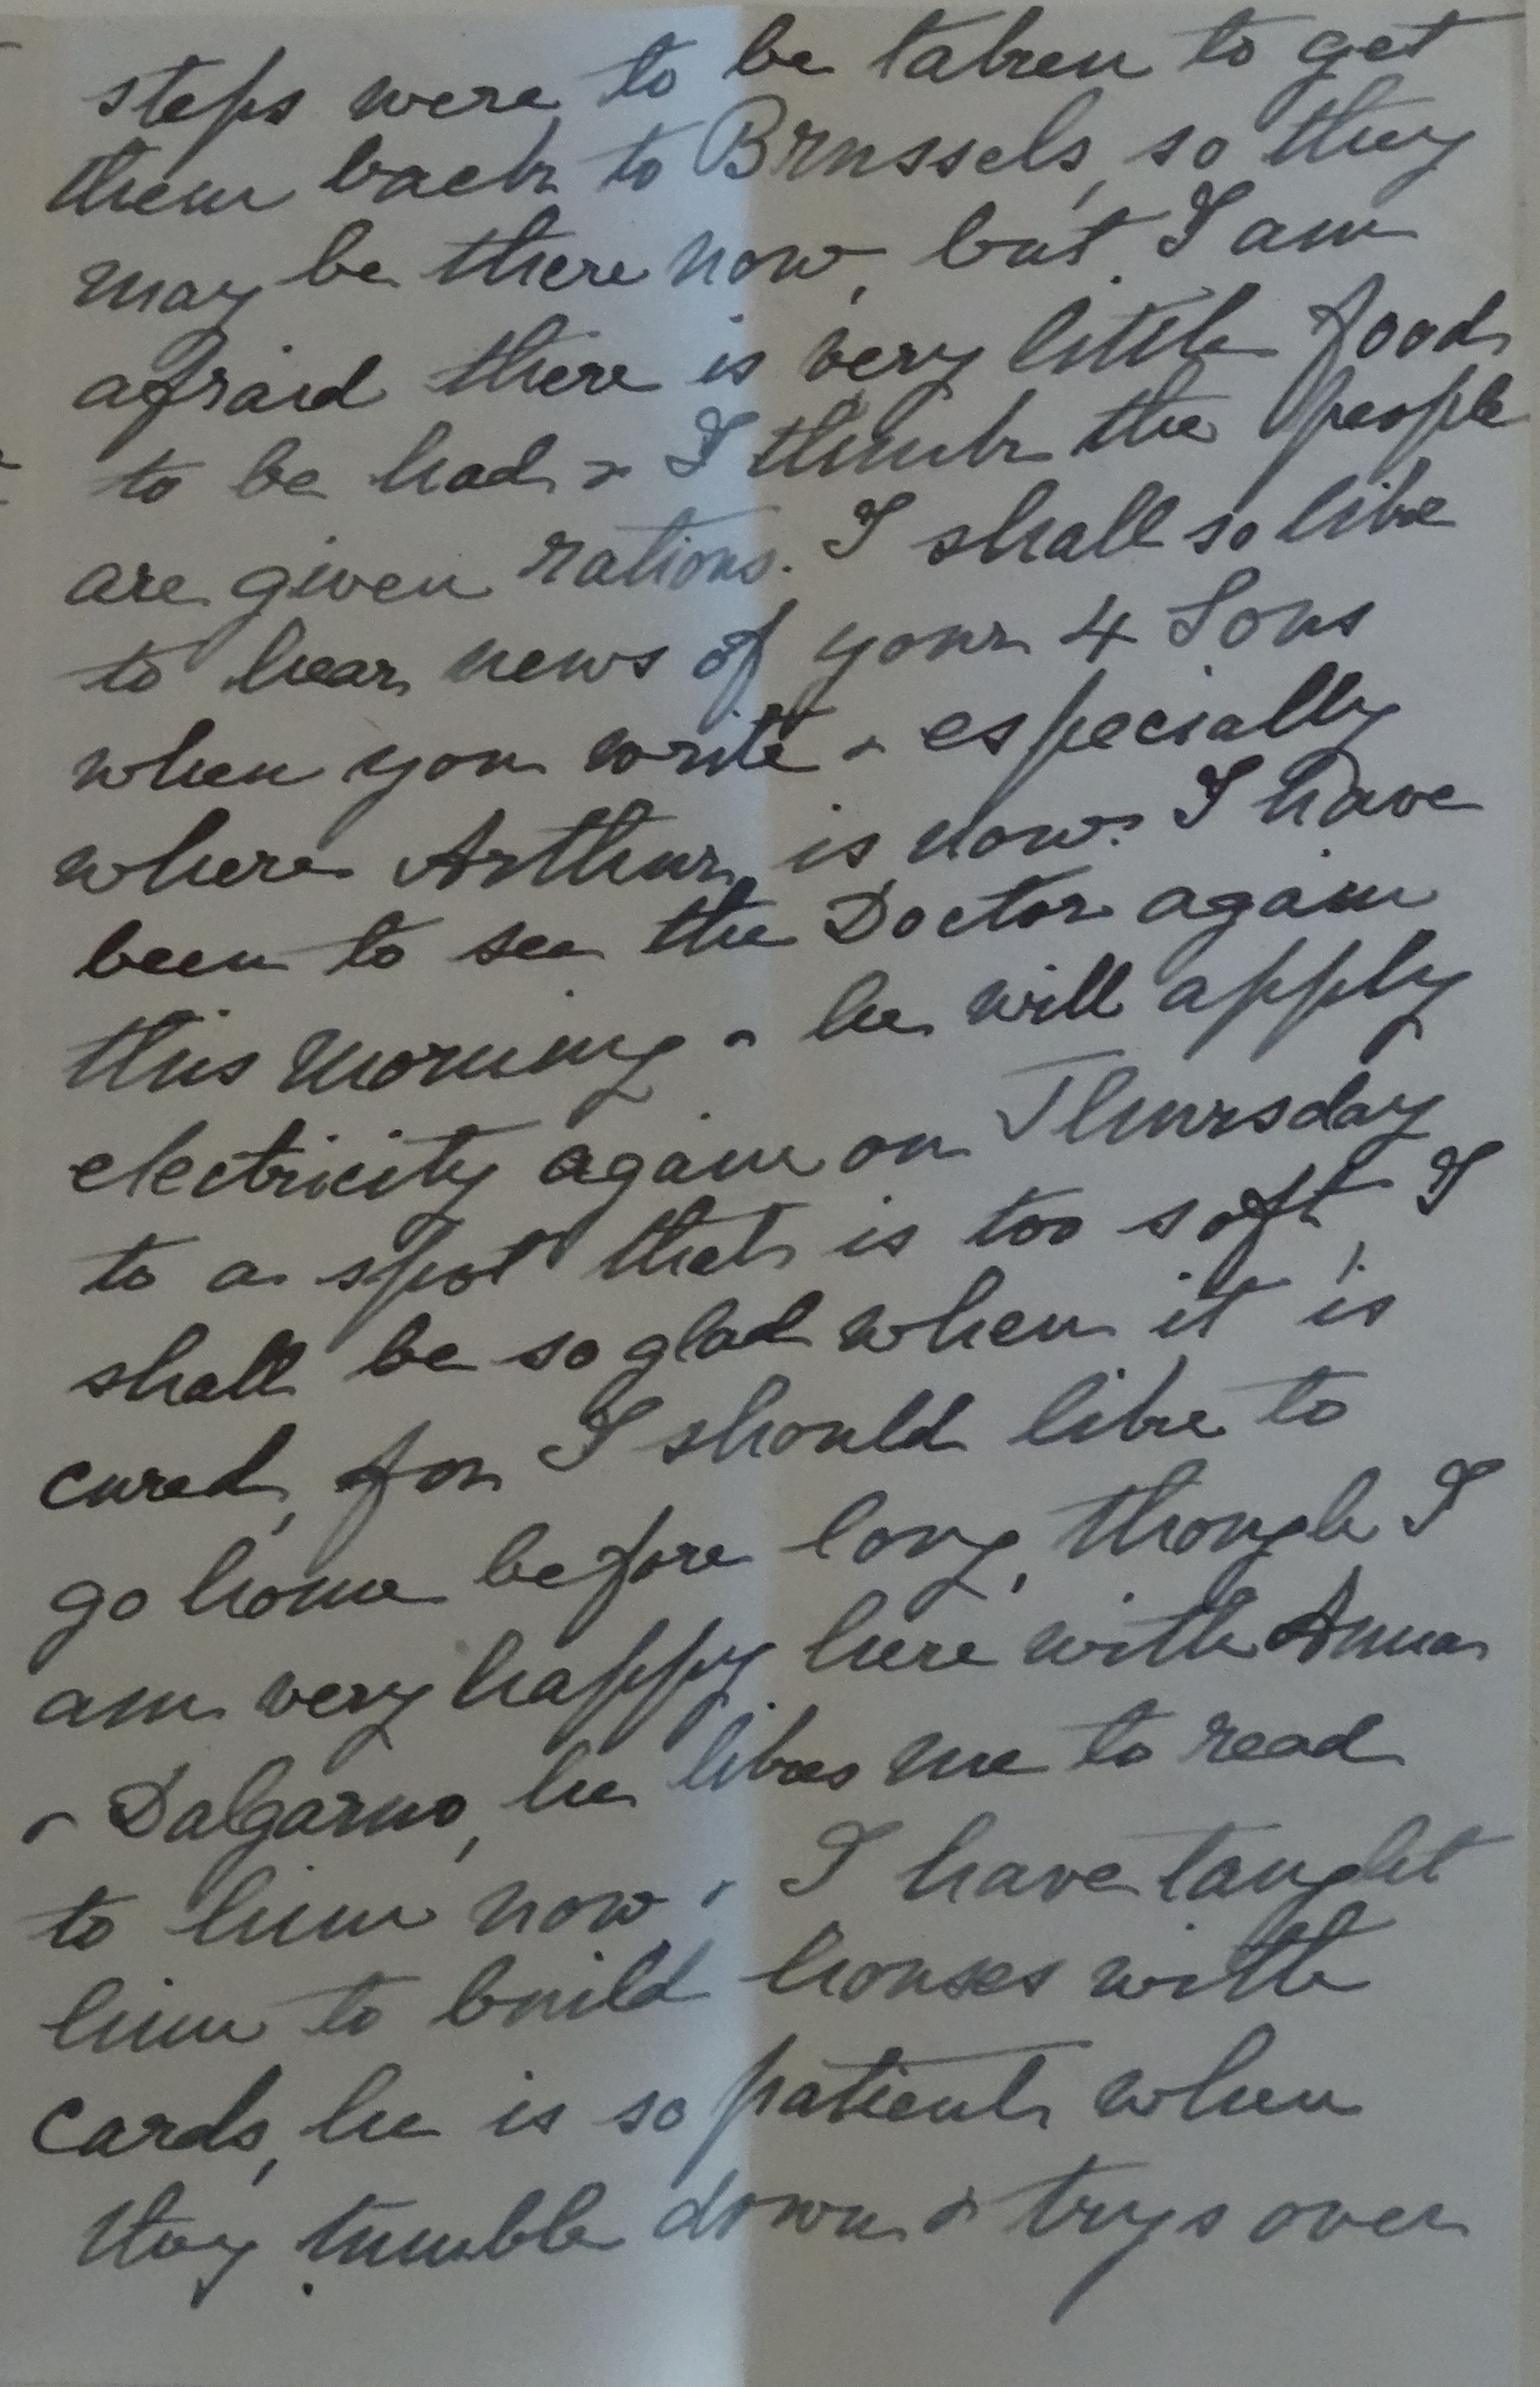 steps were to be taken to get
them back to Brussels, so they
may be there now, but I am
afraid there is very little food
to be had & I think the people
are given rations. I shall so like
to hear news of your 4 Sons
when you write & especially
where Arthur is now. I have
been to see the Doctor again
this morning & he will apply
electricity again on Thursday
to a spot that is too soft, I
shall be so glad when it is
cured, for I should like to
go home before long, though I
am very happy here with Anna
& Dalgarno, he likes me to read
to him now & I have taught
him to build houses with
cards, he is so patient when
they tumble down & trys over